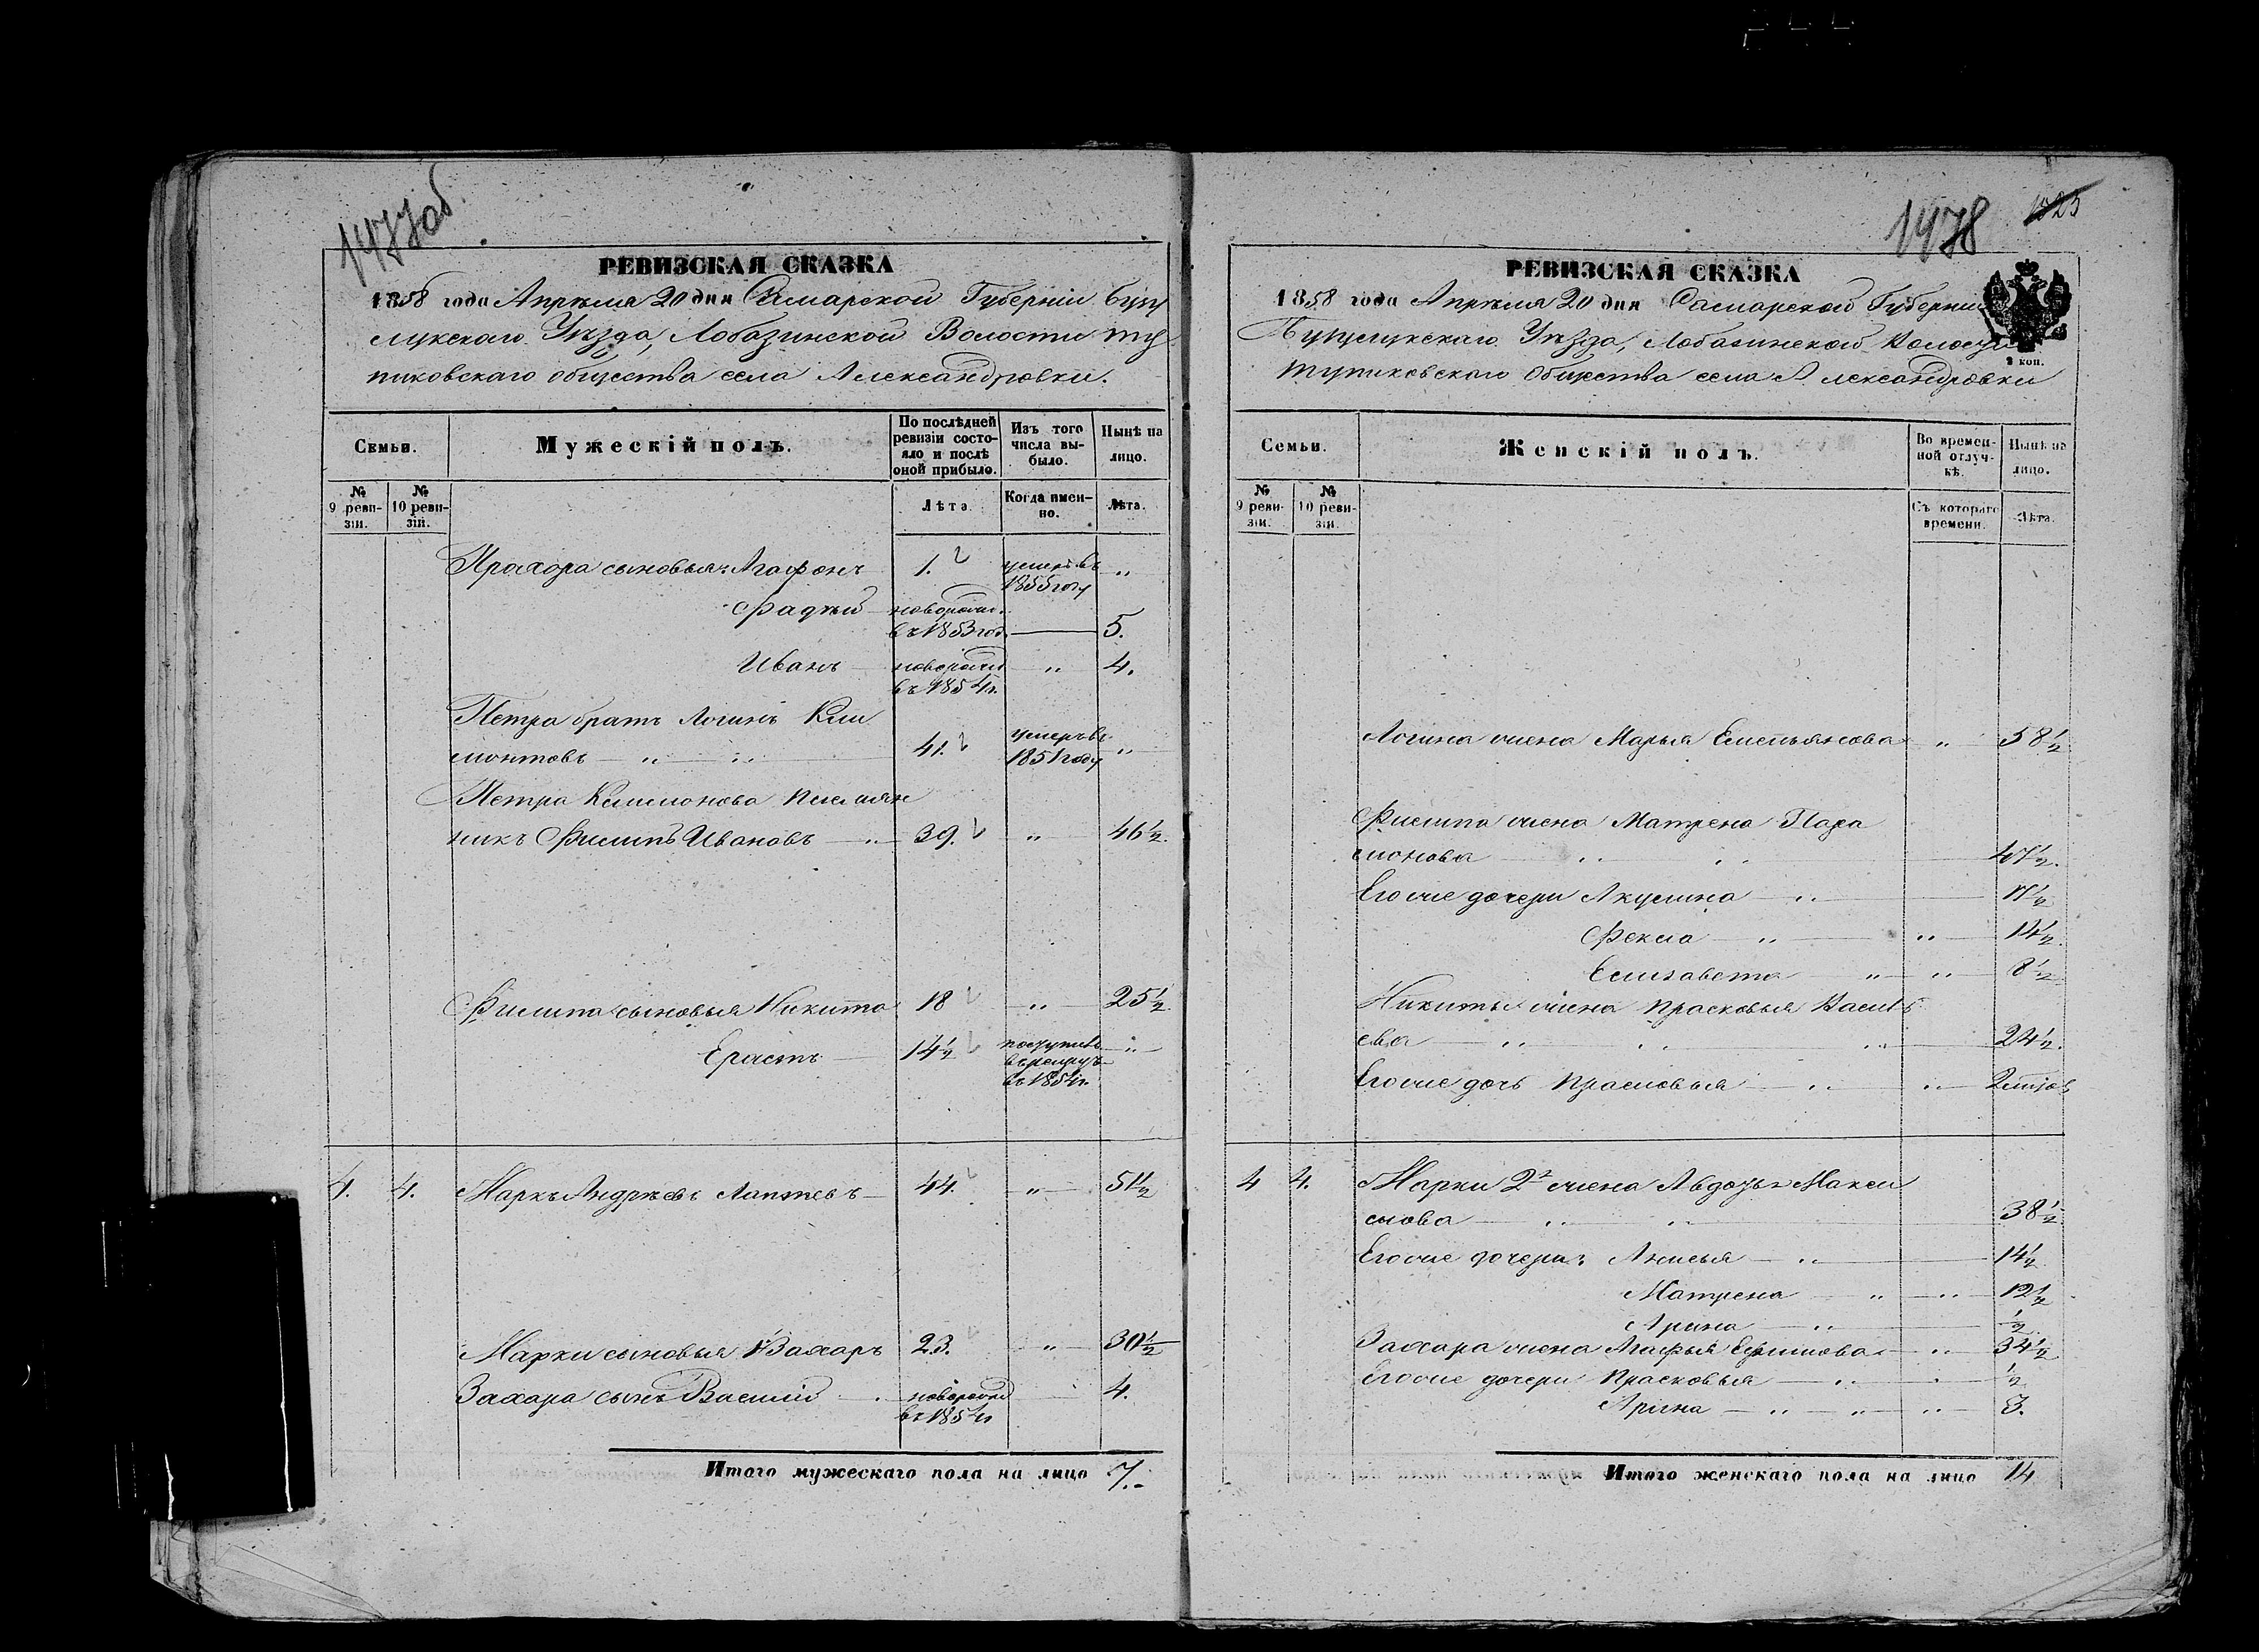 1477об.
РЕВИЗСКАЯ СКАЗКА
1858 года Апрѣля 20 дня Самарской Губерніи Бугу
луксаго Уѣзда, Лобазинской Волости Ту
пиковскаго общества села Александровки.
Семьи.
Мужескій полъ.
По послѣдней ревизіи состояло и послѣ оной прибыло.
Изъ того числа выбыло.
Нынѣ на лицо.
№ 9 ревизіи.
№ 10 ревизіи.
Лѣта.
Когда именно.
Лѣта.
Прохора сыновья: Агафонъ 1. умеръ въ 1855 году „
Фадѣй новорожд. въ 1853 год. 5.
Иванъ новорожд въ 1854 г. „ 4.
Петра братъ Логинъ Кли
монтовъ „ „ 41. умеръ въ 1851 году „
Петра Климонова племян
никъ Филипъ Ивановъ „ 39. „ 46½.
Филипа сыновья Никита 18 „ 25½
Ерастъ 14½ поступилъ въ рекруты въ 1854 г. „
4. 4. Маркъ Андрѣевъ Лаптевъ 44. „ 51½
Марки сыновья 1 Захаръ 23. „ 30½
Захара сынъ Василій новорожд въ 1854 г 4.
Итого мужескаго пола на лицо 7.
1478
1525
РЕВИЗСКАЯ СКАЗКА
1858 года Апрѣля 20 дня Самарской Губерніи
Бугуслукскаго Уѣзда, Лобазинской Волости
Тупиковскаго Общества села Александровки
2 коп.
Семьи.
Женскій полъ.
Во временной отлучкѣ.
Нынѣ на лицо.
№ 9 ревизіи.
№ 10 ревизіи.
Съ котораго времени.
Лѣта.
Логина жена Марья Емельянова „ 58½
Филипа жена Матрена Пара
монова „ „ 47½.
Его же дочери Акулина „ 17½
Фекла „ „ 14½
Елизавета „ „ 8½
Никиты жена Прасковья Василь
ева „ „ „ 24½.
Его же дочь Прасковья „ „
4 4. Марки 2я жена Авдотья Макси
мова „ „ 38½
Его же дочери: Анисья „ 14½
Матрена „ „ 12½
Арина „ ½
Захара жена Агафья Ефимова „ 34½
Его же дочери Прасковья „ „ ½
Арина „ „ „ 3.
Итого женскаго пола на лицо 14